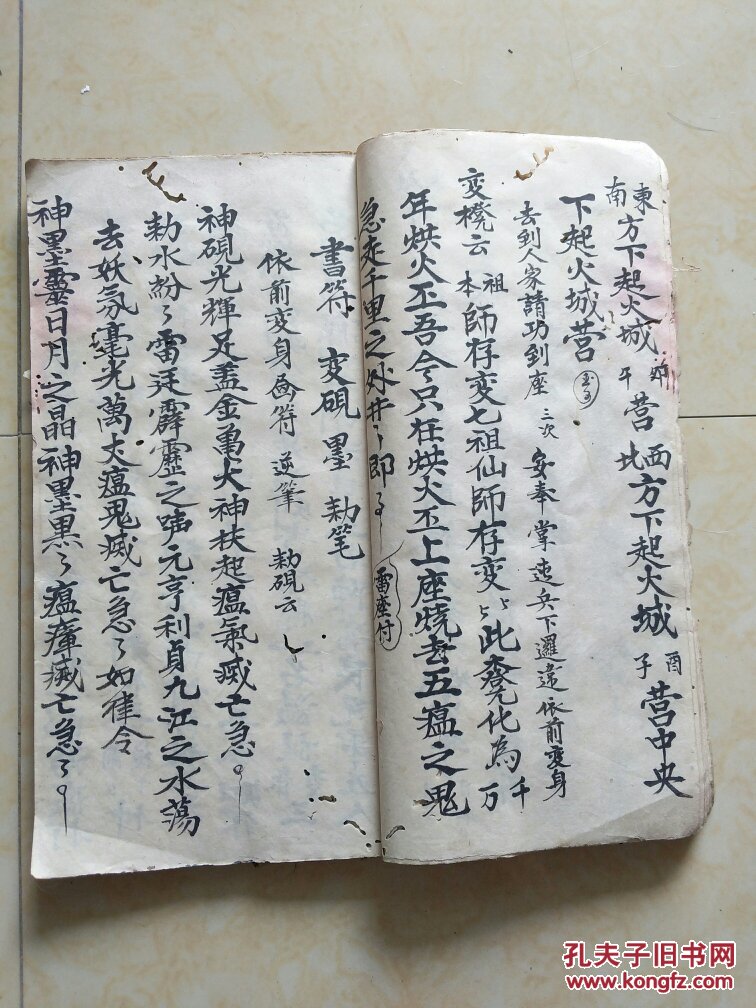 東南方下起火城卯午营西北方下起火城酉子营中央
下起火城营
去到人家請功到座三次安奉掌造兵下邏遠依前变身
变櫈云祖本師存变七祖仙師存变此櫈化為千万
年烘火丕吾今只在烘火丕上座燒去五瘟之鬼
急走千里之外井〻即
雷座付
書符变硯墨勅笔
依前变身画符逆筆勅硯云
神硯光輝足盖金亀火神扶起瘟氣滅亡急
勅水紛〻雷廷霹靂之㖂元亨利貞九江之水蕩
去妖氛毫光萬丈瘟鬼滅亡急〻如律令
神墨靈日月之晶神墨黑〻瘟㾮滅亡急〻
孔夫子旧书网
www.kongfz.com